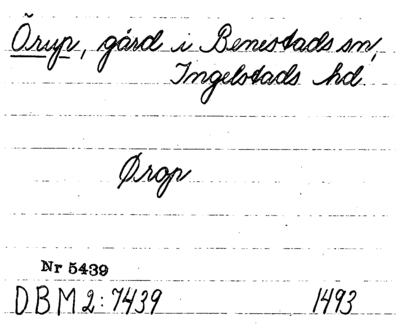 Örup, gård i Benestads sn,
Ingelstads hd.
Ørop
Nr 5439
DBM2:7439 1493